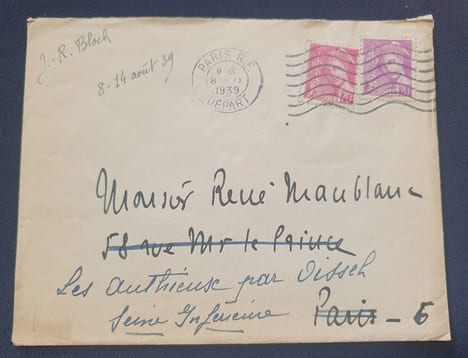 J.-R. Bloch
8-14 août 39
PARIS R.P.
9
8
1939
DÉPART
Monsieur René Maublanc
58 rue Mr le Prince
Les Authieux par Oissel
Seine Inférieure
Paris - 6